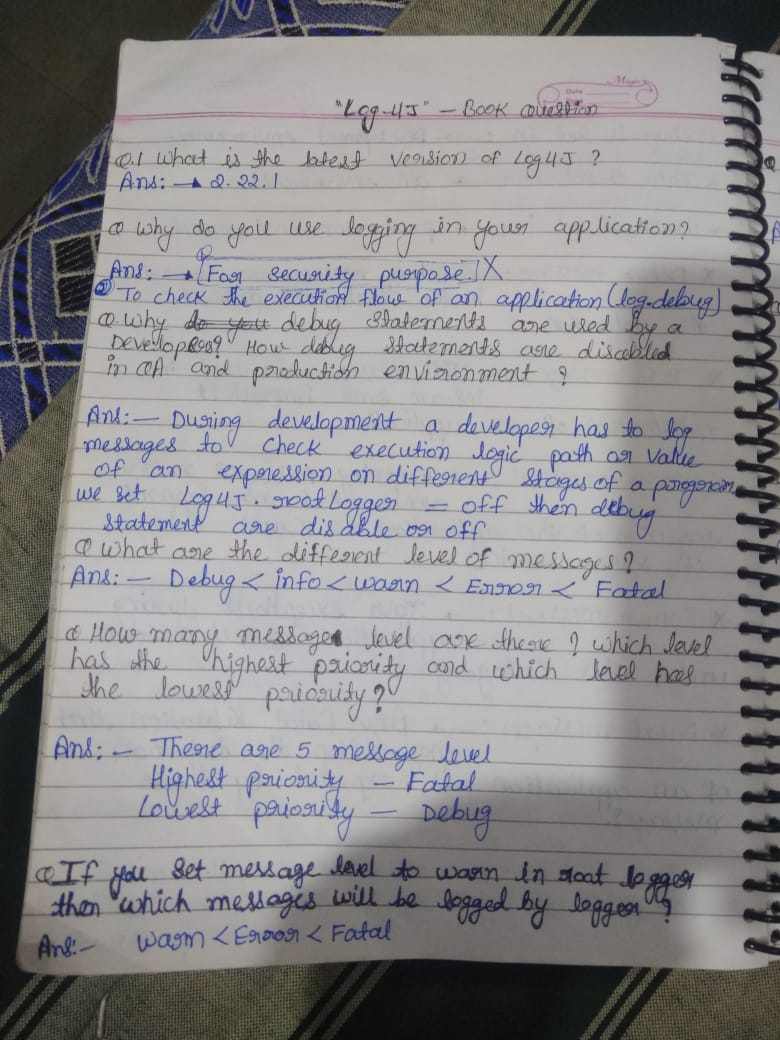 Magic
Date
"Log-4J" - Book Question
Q.1 What is the latest version of Log4J ?
Ans: → 2.22.1
Q Why do you use logging in your application?
Ans: → ① [For security purpose.] X
② To check the execution flow of an application (log.debug)
Q. Why do you debug statements are used by a
Developers? How debug statements are disabled
in QA and production environment ?
Ans: - During development a developer has to log
messages to check execution logic path or value
of an expression on different stages of a program
we set Log4J. rootLogger = off then debug
statement are disable or off
Q What are the different level of messages?
Ans: - Debug < info < warn < Error < Fatal
Q How many message level are there ? which level
has the highest priority and which level has
the lowest priority?
Ans: - There are 5 message level
Highest priority - Fatal
Lowest priority - Debug
Q If you set message level to warn in root logger
then which messages will be logged by logger ?
Ans:- Warn < Error < Fatal